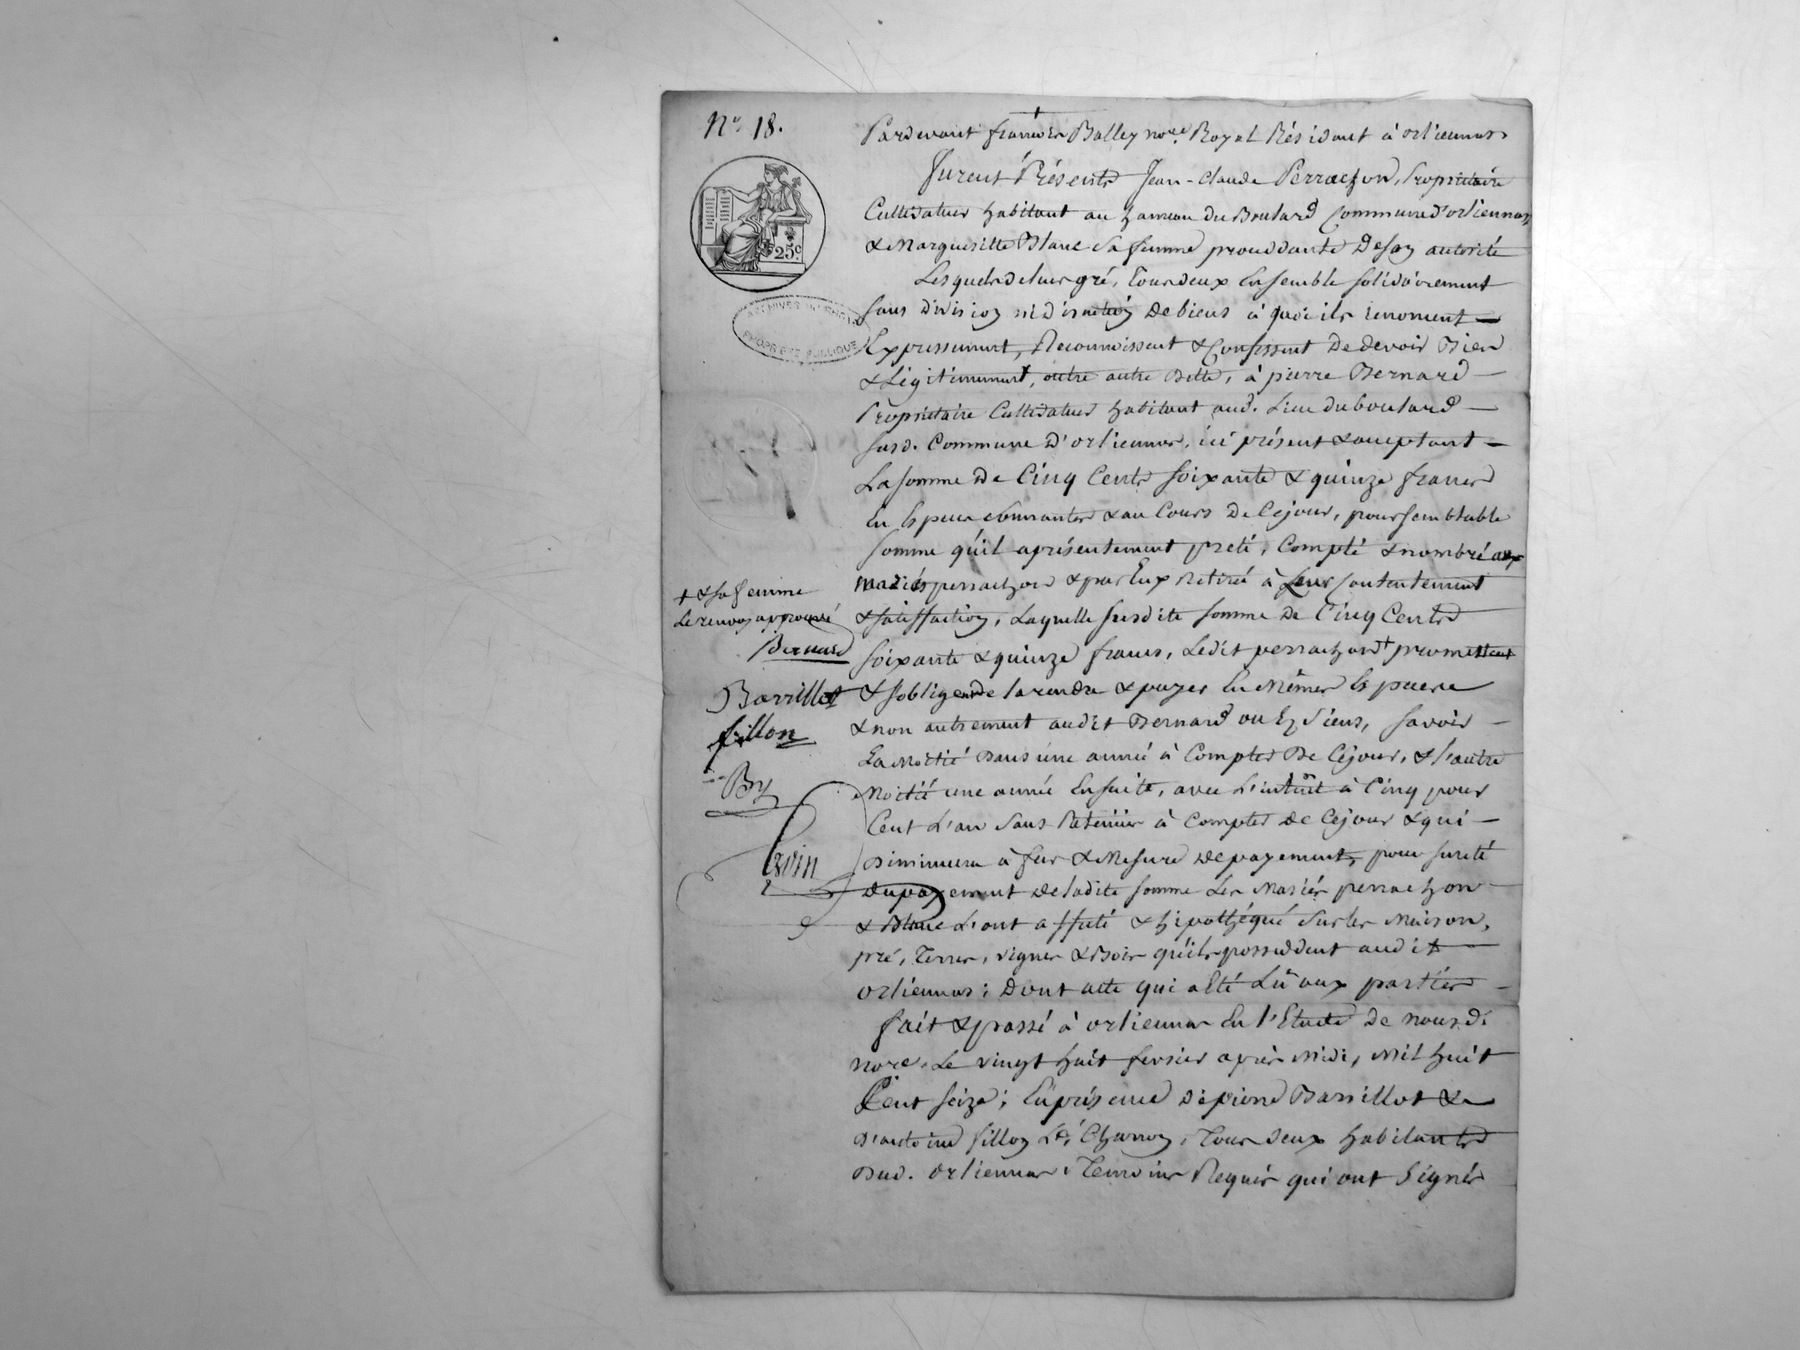 N° 18.
25c
ARCHIVES DU RHÔNE
PROPRIÉTÉ PUBLIQUE
Pardevant francois Balley nore. Royal Résidant à orliennas
furent Présents Jean-Claude Perrachon, Propriétaire
Cultivateur habitant au hameau du Boulard Commune d'orliennas
& Marguerite Blanc sa femme procédante de son autorité
Lesquels de leur gré, Tous deux Ensemble solidairement
sans division ni discution de biens à quoi ils renoncent
Expressement, Reconnoissent & Confessent De devoir Bien
& Légitimement, outre autre Dette, à pierre Bernard
Propriétaire Cultivateur habitant aud. Lieu du boulard
susd. Commune D'orliennas, ici présent & acceptant
La somme De Cinq Cents soixante & quinze francs
En Especes sonnantes & au Cours De Cejour, pour semblable
somme qu'il a présentement preté, Compté & nombré aux
mariés perrachon & par Eux Retiré à Leur Contentement
& satisfaction, Laquelle susdite somme de Cinq Cents
soixante & quinze francs, Ledit perrachon + promettent
& sobligent de la rendre & payer En Mêmes Especes
& non autrement audit Bernard ou Ez siens, savoir
La Moitié Dans une année à Compter De Cejour, & l'autre
Moitié une année Ensuite, avec L'intérêt à Cinq pour
Cent L'an sans Retenue à Compter De Cejour & qui
Diminuera à fur & Mesure De payement, pour sureté
Du payement De ladite somme Les Mariés perrachon
& Blanc L'ont affecté & hipothéqué sur les Maison,
pré, Terres, vignes & Bois qu'ils possedent audit
orliennas; Dont acte qui a Eté Lû aux parties
fait & passé à orliennas En l'Etude De nous d.
nore. Le vingt huit fevrier après Midi, Mil huit
Cent seize; En présence De pierre Barrillot &
D'antoine fillon Tous deux habitants
Dud. orliennas, Temoins Requis qui ont signés
+ & sa femme
Le renvoy approuvé
Bernard
Barrillot
fillon
By